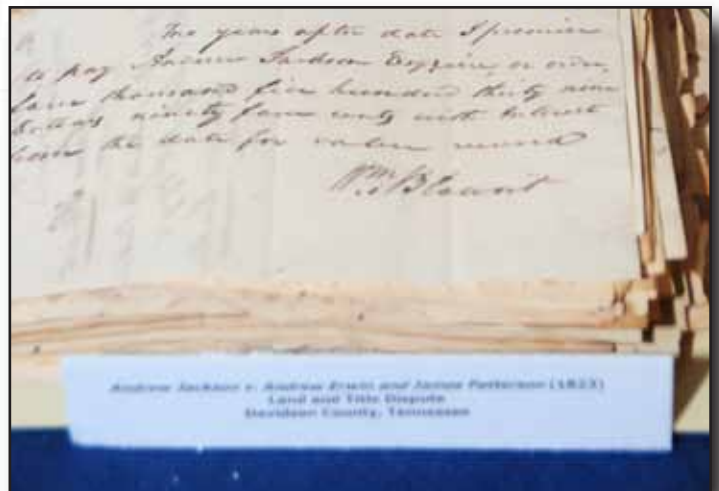 years after date I promise
to pay Andrew Jackson Esquire, or order,
four thousand five hundred thirty nine
dollars ninety four cents with Interest
from the date for value received
Wm Blount
Andrew Jackson v. Andrew Erwin and James Patterson (1823)
Land and Title Dispute
Davidson County, Tennessee